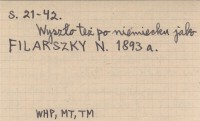 s. 21-42.
Wyszło też po niemiecku jako
FILARSZKY N. 1893 a.
WHP, MT, TM